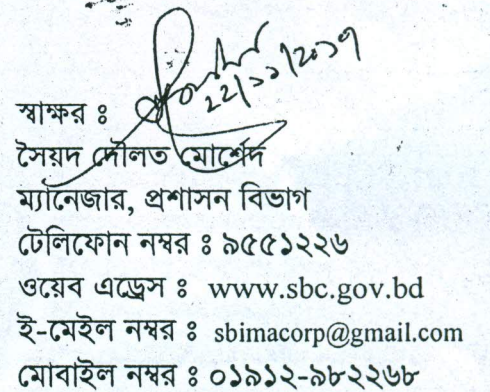 ২২/১১/২০১৭
স্বাক্ষর ঃ
সৈয়দ দৌলত মোর্শেদ
ম্যানেজার, প্রশাসন বিভাগ
টেলিফোন নম্বর ঃ ৯৫৫১২২৬
ওয়েব এড্রেস ঃ www.sbc.gov.bd
ই-মেইল নম্বর ঃ sbimacorp@gmail.com
মোবাইল নম্বর ঃ ০১৯১২-৯৮২২৬৮